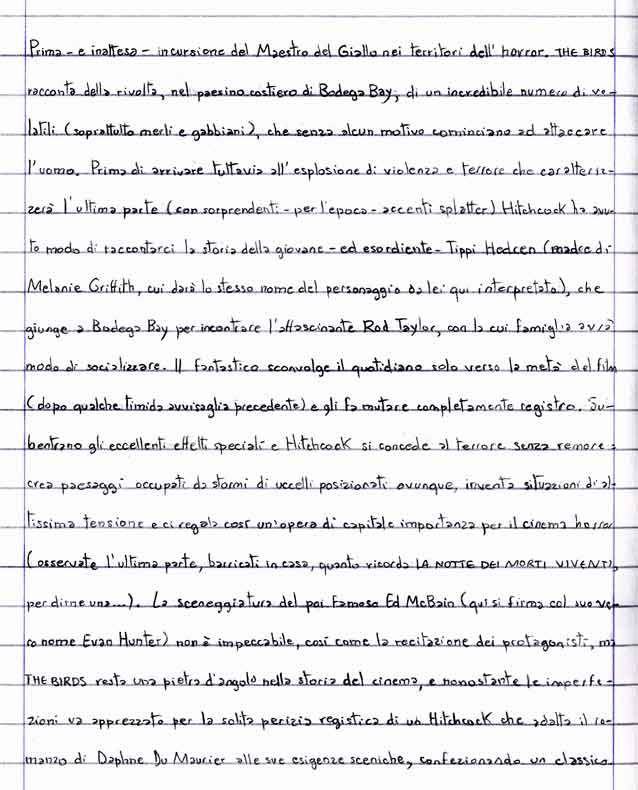 Prima - e inattesa - incursione del Maestro del Giallo nei territori dell'horror. THE BIRDS
racconta della rivolta, nel paesino costiero di Bodega Bay, di un incredibile numero di vo-
latili (soprattutto merli e gabbiani), che senza alcun motivo cominciano ad attaccare
l'uomo. Prima di arrivare tuttavia all'esplosione di violenza e terrore che caratteriz-
zerà l'ultima parte (con sorprendenti - per l'epoca - accenti splatter) Hitchcock ha avu-
to modo di raccontarci la storia della giovane - ed esordiente - Tippi Hedren (madre di
Melanie Griffith, cui darà lo stesso nome del personaggio da lei qui interpretato), che
giunge a Bodega Bay per incontrare l'affascinante Rod Taylor, con la cui famiglia avrà
modo di socializzare. Il fantastico sconvolge il quotidiano solo verso la metà del film
(dopo qualche timida avvisaglia precedente) e gli fa mutare completamente registro. Su-
bentrano gli eccellenti effetti speciali e Hitchcock si concede al terrore senza remore:
crea paesaggi occupati da stormi di uccelli posizionati ovunque, inventa situazioni di al-
tissima tensione e ci regala così un'opera di capitale importanza per il cinema horror
(osservate l'ultima parte, barricati in casa, quanto ricorda LA NOTTE DEI MORTI VIVENTI,
per dirne una...). La sceneggiatura del poi famoso Ed McBain (qui si firma col suo ve-
ro nome Evan Hunter) non è impeccabile, così come la recitazione dei protagonisti, ma
THE BIRDS resta una pietra d'angolo nella storia del cinema, e nonostante le imperfe-
zioni va apprezzato per la solita perizia registica di un Hitchcock che adatta il ro-
manzo di Daphne Du Maurier alle sue esigenze sceniche, confezionando un classico.